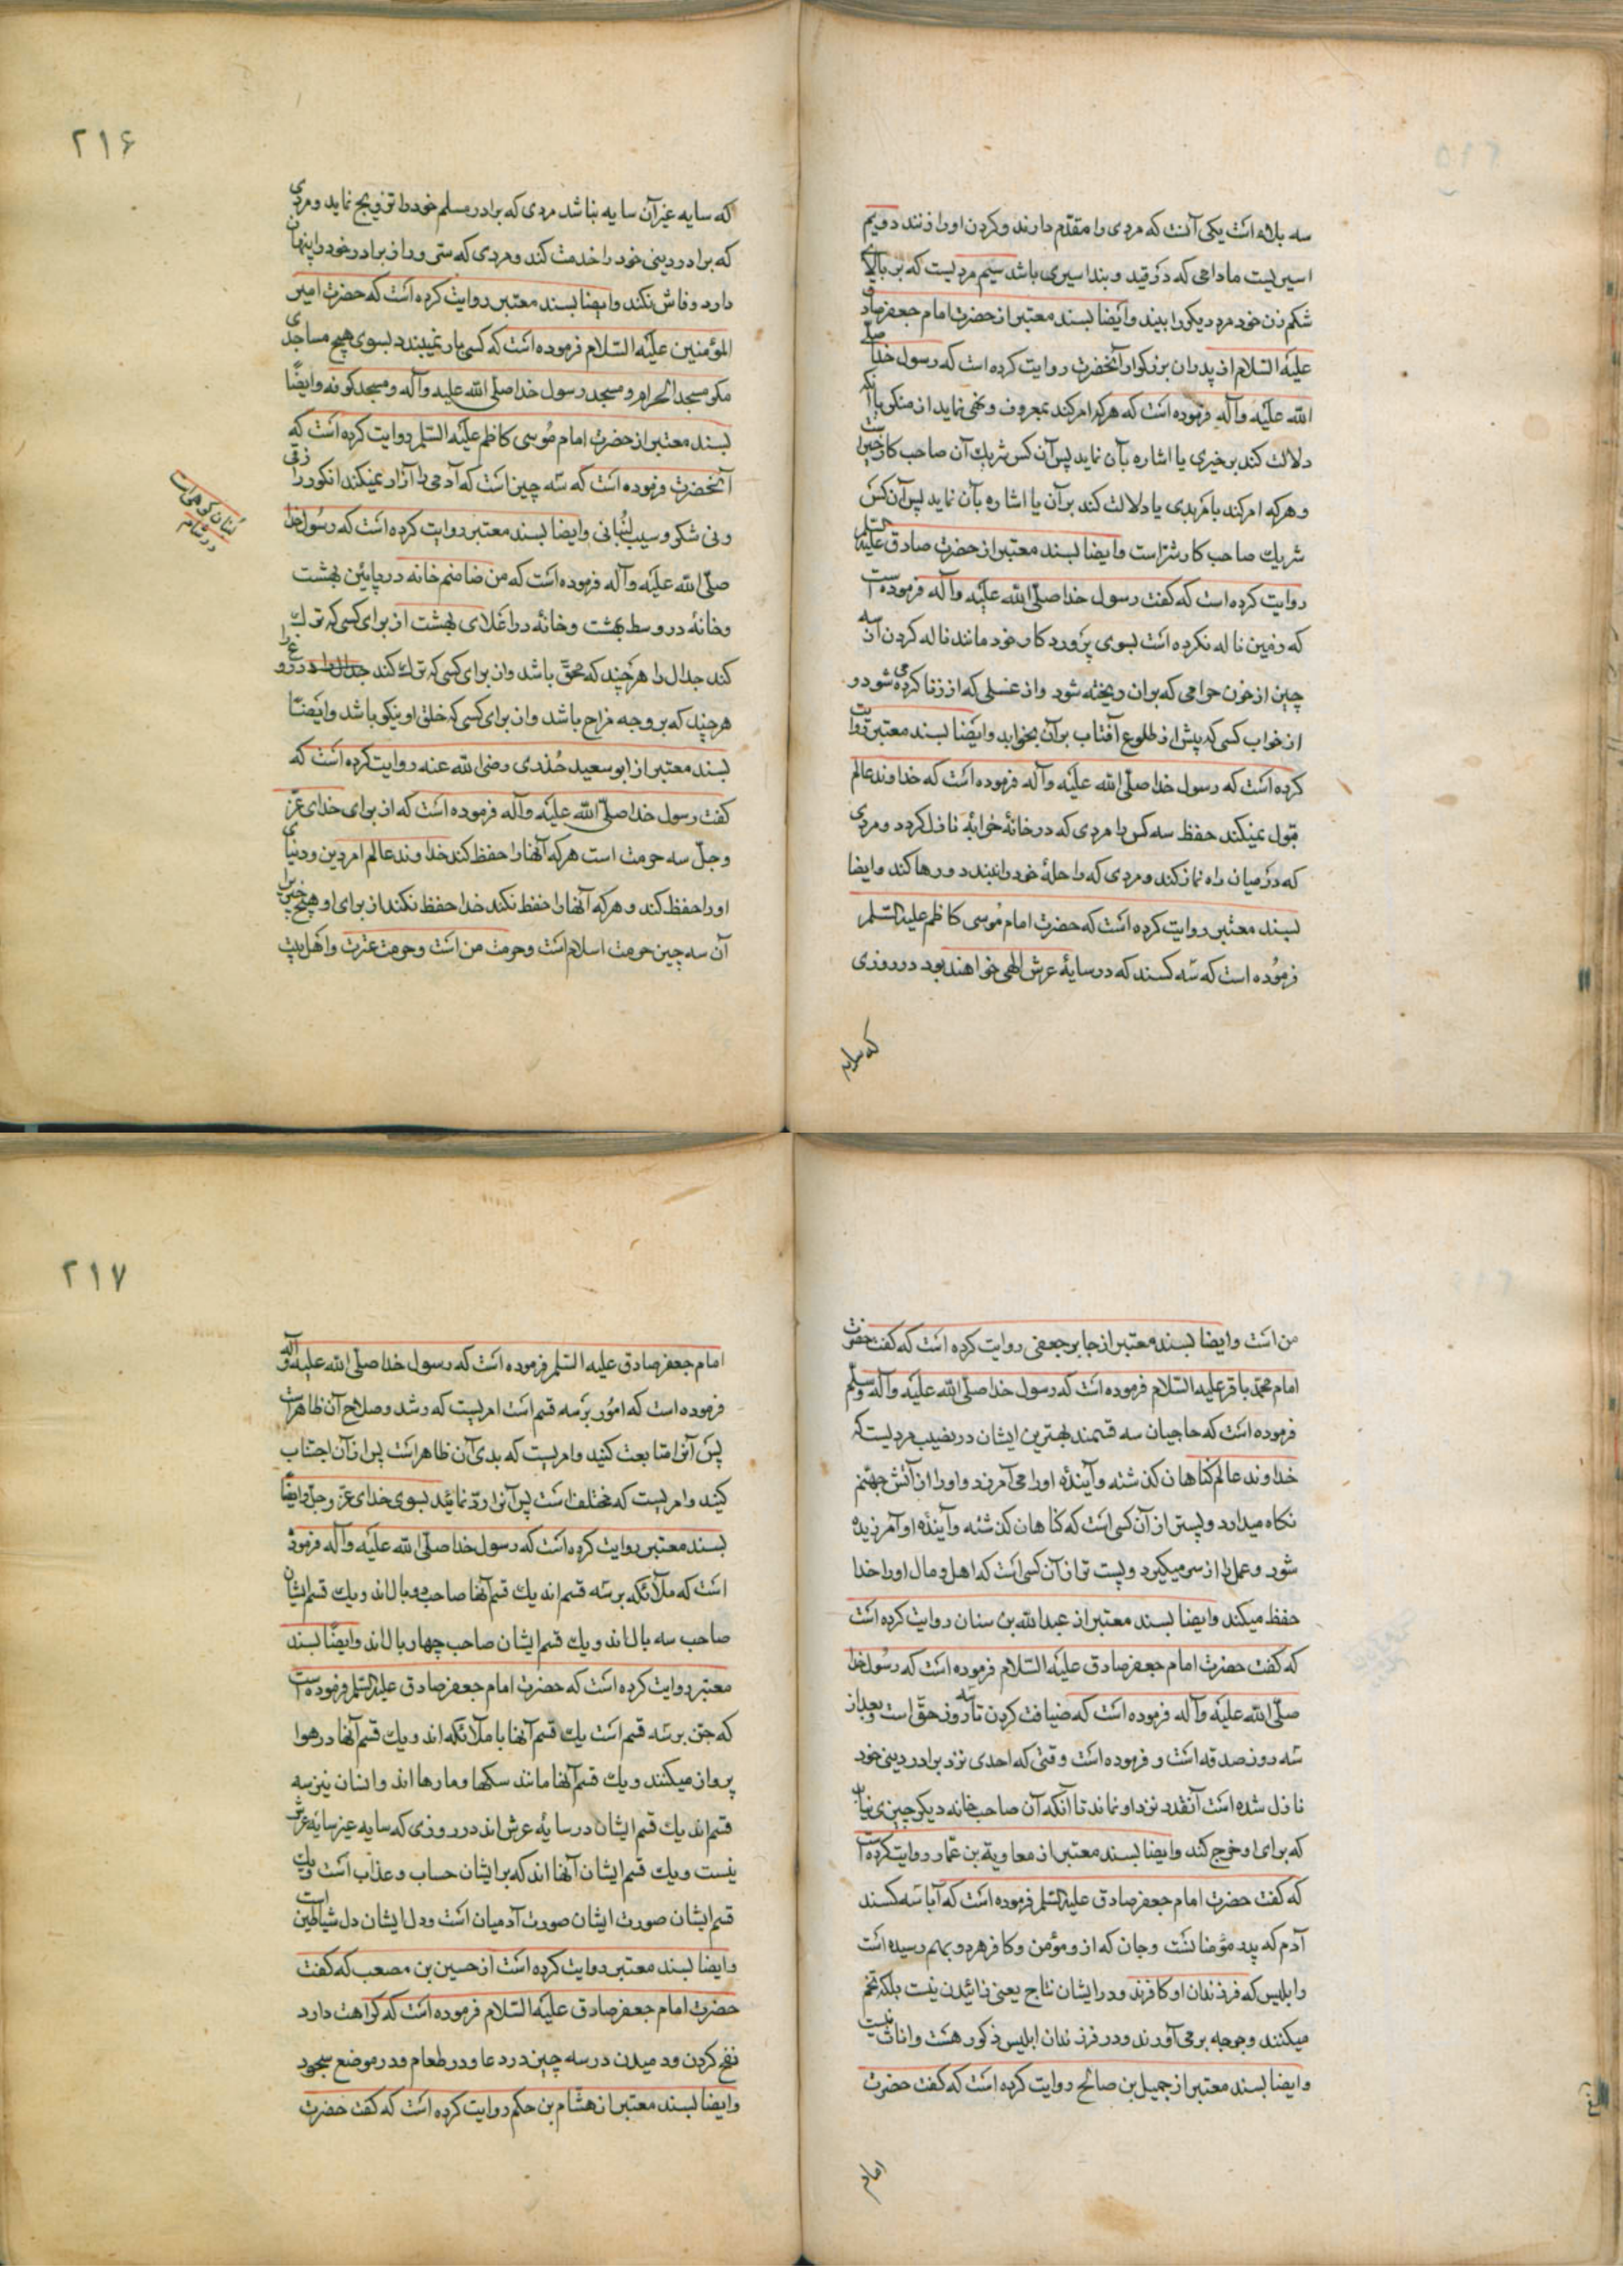 سه بلاء است یکی آنست که مردی را مقدّم دارند و کردن او را زنند دویم
اسیریست مادامی که در قید و بند اسیری باشد سیّم مردیست که بر بالای
شکم زن خود مرد دیکر را بیند وایضا بسند معتبر از حضرت امام جعفر صادق
علیه السّلام از پدران بزرکوار آنحضرت روایت کرده است که رسول خدا صلّی
الله علیه وآله فرموده است که هرکه امر کند بمعروف و نهی نماید از منکر یا آنکه
دلالت کند بر خیری یا اشاره بآن نماید پس آن کس شریك آن صاحب کار خیر است
و هرکه امر کند بامر بدی یا دلالت کند بر آن یا اشاره بآن نماید پس آن کس
شریك صاحب کار شر است وایضا بسند معتبر از حضرت صادق علیه السلم
روایت کرده است که کفت رسول خدا صلّی الله علیه وآله فرموده است
که زمین ناله نکرده است بسوی پرورد کار خود مانند ناله کردن آن از سه
چیز از خون حرامی که بر ان ریخته شود واز غسلی که از زنا کرده می شود و
از خواب کسی که پیش از طلوع آفتاب بر آن بخوابد وایضا بسند معتبر روایت
کرده است که رسول خدا صلّی الله علیه وآله فرموده است که خداوند عالم
قبول نمیکند حفظ سه کس را مردی که در خانهٔ خرابه نازل کردد و مردی
که در میان راه نماز کند و مردی که راحلهٔ خود را نبندد و رها کند وایضا
بسند معتبر روایت کرده است که حضرت امام مُوسی کاظم علیه السّلم
فرمُوده است که سَه کسند که در سایهٔ عرش الهی خواهند بود در روزی
که سایه
٢١۶
که سایه غیر آن سایه نباشد مردی که برادر مسلم خود را تزویج نماید و مردی
که برادر دینی خود را خدمت کند و مردی که ستی و راز برادر خود را پنهان
دارد و فاش نکند وایضا بسند معتبر روایت کرده است که حضرت امیر
المؤمنین علیه السّلام فرموده است که کسی بار نمیبندد بسوی هیچ مساجدی
مکر مسجد الحرام و مسجد رسول خدا صلّی الله علیه وآله و مسجد کوفه وایضًا
بسند معتبر از حضرت امام مُوسی کاظم علیه السّلم روایت کرده است که
آنحضرت فرموده است که سَه چیز است که آدمی را آزار نمیکند انکور رازقی
ونی شکر و سیب لُبنانی وایضا بسند معتبر روایت کرده است که رسُول خدا
لُبنان کوهی است
در شام
صلّی الله علیه وآله فرموده است که من ضامنم خانه در پایین بهشت
وخانهٔ در وسط بهشت و خانهٔ در اعلای بهشت از برای کسی که ترك
کند جدال را هرچند که محقّ باشد واز برای کسی که ترك کند دروغ را
هرچند که بر وجه مزاح باشد واز برای کسی که خلق او نیکو باشد وایضًا
بسند معتبر از ابو سعید خُدری رضی الله عنه روایت کرده است که
کفت رسول خدا صلّی الله علیه وآله فرموده است که از برای خدای عزّ
وجلّ سه حرمت است هرکه آنها را حفظ کند خداوند عالم امر دین و دنیای
او را حفظ کند و هرکه آنها را حفظ نکند خدا حفظ نکند از برای او هیچ چیز را
آن سه چیز حرمت اسلام است و حرمت من است و حرمت عترت و اهل بیت
من است وایضا بسند معتبر از جابر جعفی روایت کرده است که کفت حضرت
امام محمّد باقر علیه السّلام فرموده است که رسول خدا صلّی الله علیه وآله وسلّم
فرموده است که حاجیان سه قسمند بهترین ایشان در نصیب مردیست که
خداوند عالم کناهان کذشته و آیندهٔ او را می آمرزد و او را از آتش جهنّم
نکاه میدارد و پستر از آن کسی است که کناهان کذشته و آیندهٔ او آمرزیده
شود و عمل را از سر میکیرد و پست تر از آن کسی است که اهل و مال او را خدا
حفظ میکند وایضا بسند معتبر از عبدالله بن سنان روایت کرده است
که کفت حضرت امام جعفر صادق علیه السّلام فرموده است که رسُول خدا
صلّی الله علیه وآله فرموده است که ضیافت کردن تا سه روز حقّ است و بعد از
سَه روز صدقه است و فرموده است وقتی که احدی نزد برادر دینی خود
نازل شده است آنقدر نزد او نماند تا آنکه آن صاحب خانه دیکر چیزی نیابد
که برای او خرج کند وایضا بسند معتبر از معاویة بن عمّار روایت کرده است
که کفت حضرت امام جعفر صادق علیه السّلم فرموده است که آبا سَه کسند
آدم که پدر مؤمنانست و جان که از و مؤمن و کافر هر دو بهم رسیده است
وابلیس که فرزندان او کافرند و در ایشان نتاج یعنی زائیدن نیست بلکه تخم
میکنند و جوجه بر می آورند و در فرزندان ابلیس ذکور هست و اناث نیست
وایضا بسند معتبر از جمیل بن صالح روایت کرده است که کفت حضرت
امام
٢١٧
امام جعفر صادق علیه السّلم فرموده است که رسول خدا صلّی الله علیه وآله
فرموده است که امُور بر سَه قسم است امریست که رشد و صلاح آن ظاهر است
پس آنرا متابعت کنید و امریست که بدی آن ظاهر است پس از آن اجتناب
کنید و امریست که مختلف است پس آنرا ردّ نمائید بسوی خدای عزّ وجلّ وایضًا
بسند معتبر روایت کرده است که رسول خدا صلّی الله علیه وآله فرموده
است که ملائکه بر سَه قسم اند یك قسم آنها صاحب دو بال اند و یك قسم ایشان
صاحب سه بال اند و یك قسم ایشان صاحب چهار بال اند وایضًا بسند
معتبر روایت کرده است که حضرت امام جعفر صادق علیه السّلم فرموده است
که جنّ بر سَه قسم است یك قسم آنها با ملائکه اند و یك قسم آنها در هوا
پرواز میکنند و یك قسم آنها مانند سکها و مارها اند و انسان نیز سه
قسم اند یك قسم ایشان در سایهٔ عرش اند در روزی که سایه غیر سایهٔ عرش
نیست و یك قسم ایشان آنها اند که بر ایشان حساب و عذاب است و یك
قسم ایشان صورت ایشان صورت آدمیان است و دل ایشان دل شیاطین است
وایضا بسند معتبر روایت کرده است از حسین بن مصعب که کفت
حضرت امام جعفر صادق علیه السّلام فرموده است که کراهت دارد
نفخ کردن و دمیدن در سه چیز در دعا و در طعام و در موضع سجود
وایضا بسند معتبر از هشام بن حکم روایت کرده است که کفت حضرت